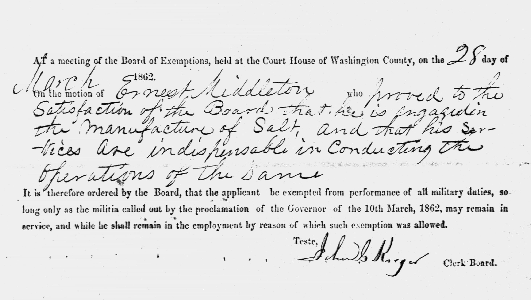 At a meeting of the Board of Exemptions, held at the Court House of Washington County, on the 28 day of
March 1862.
On the motion of Ernest Middleton who proved to the
Satisfaction of the Board that he is engaged in
the manufacture of Salt, and that his Ser-
vices are indispensable in Conducting the
Operations of the Same
It is therefore ordered by the Board, that the applicant be exempted from performance of all military duties, so
long only as the militia called out by the proclamation of the Governor of the 10th March, 1862, may remain in
service, and while he shall remain in the employment by reason of which such exemption was allowed.
Teste,
John C Kreger
Clerk Board.